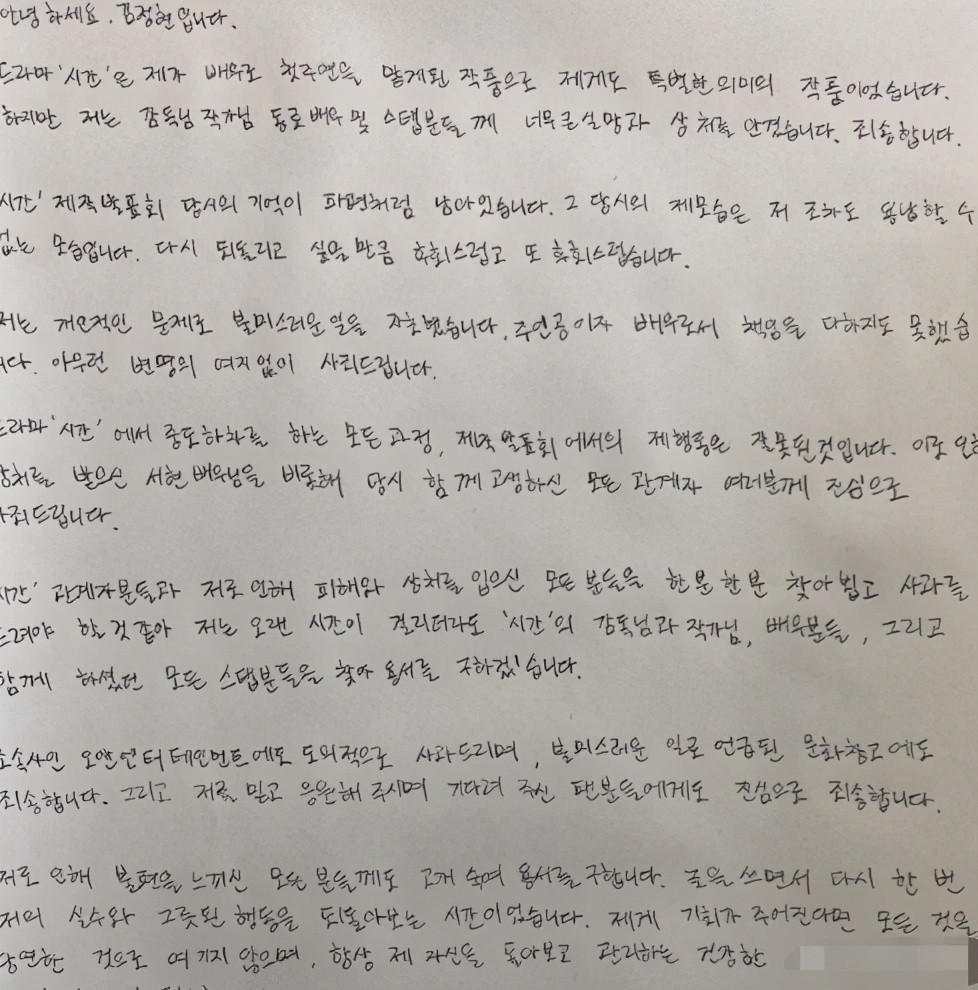 안녕하세요. 김정현입니다.
드라마 '시간'은 제가 배우로 첫주연을 맡게된 작품으로 제게도 특별한 의미의 작품이었습니다.
하지만 저는 감독님 작가님 동료배우 및 스탭분들께 너무 큰 실망과 상처를 안겼습니다. 죄송합니다.
시간' 제작발표회 당시의 기억이 파편처럼 남아있습니다. 그 당시의 제모습은 저 조차도 용납할 수
없는 모습입니다. 다시 되돌리고 싶을 만큼 후회스럽고 또 후회스럽습니다.
저는 개인적인 문제로 불미스러운 일을 자초했습니다. 주연공이자 배우로서 책임을 다하지도 못했습
니다. 아무런 변명의 여지 없이 사죄드립니다.
드라마 '시간' 에서 중도하차를 하는 모든 과정, 제작발표회에서의 제행동은 잘못된 것입니다. 이로 인해
상처를 받으신 서현 배우님을 비롯해 당시 함께 고생하신 모든 관계자 여러분께 진심으로
사죄드립니다.
시간' 관계자분들과 저로 인해 피해와 상처를 입으신 모든 분들을 한분 한분 찾아 뵙고 사과를
드려야 할 것 같아 저는 오랜 시간이 걸리더라도 '시간'의 감독님과 작가님, 배우분들, 그리고
함께 하셨던 모든 스탭분들을 찾아 용서를 구하겠습니다.
소속사인 오앤엔터테인먼트에도 도의적으로 사과드리며, 불미스러운 일로 언급된 문화창고에도
죄송합니다. 그리고 저를 믿고 응원해 주시며 기다려 주신 팬분들에게도 진심으로 죄송합니다.
저로 인해 불편을 느끼신 모든 분들께도 고개 숙여 용서를 구합니다. 글을 쓰면서 다시 한 번
저의 실수와 그릇된 행동을 되돌아보는 시간이었습니다. 제게 기회가 주어진다면 모든 것을
당연한 것으로 여기지 않으며, 항상 제 자신을 돌아보고 관리하는 건강한